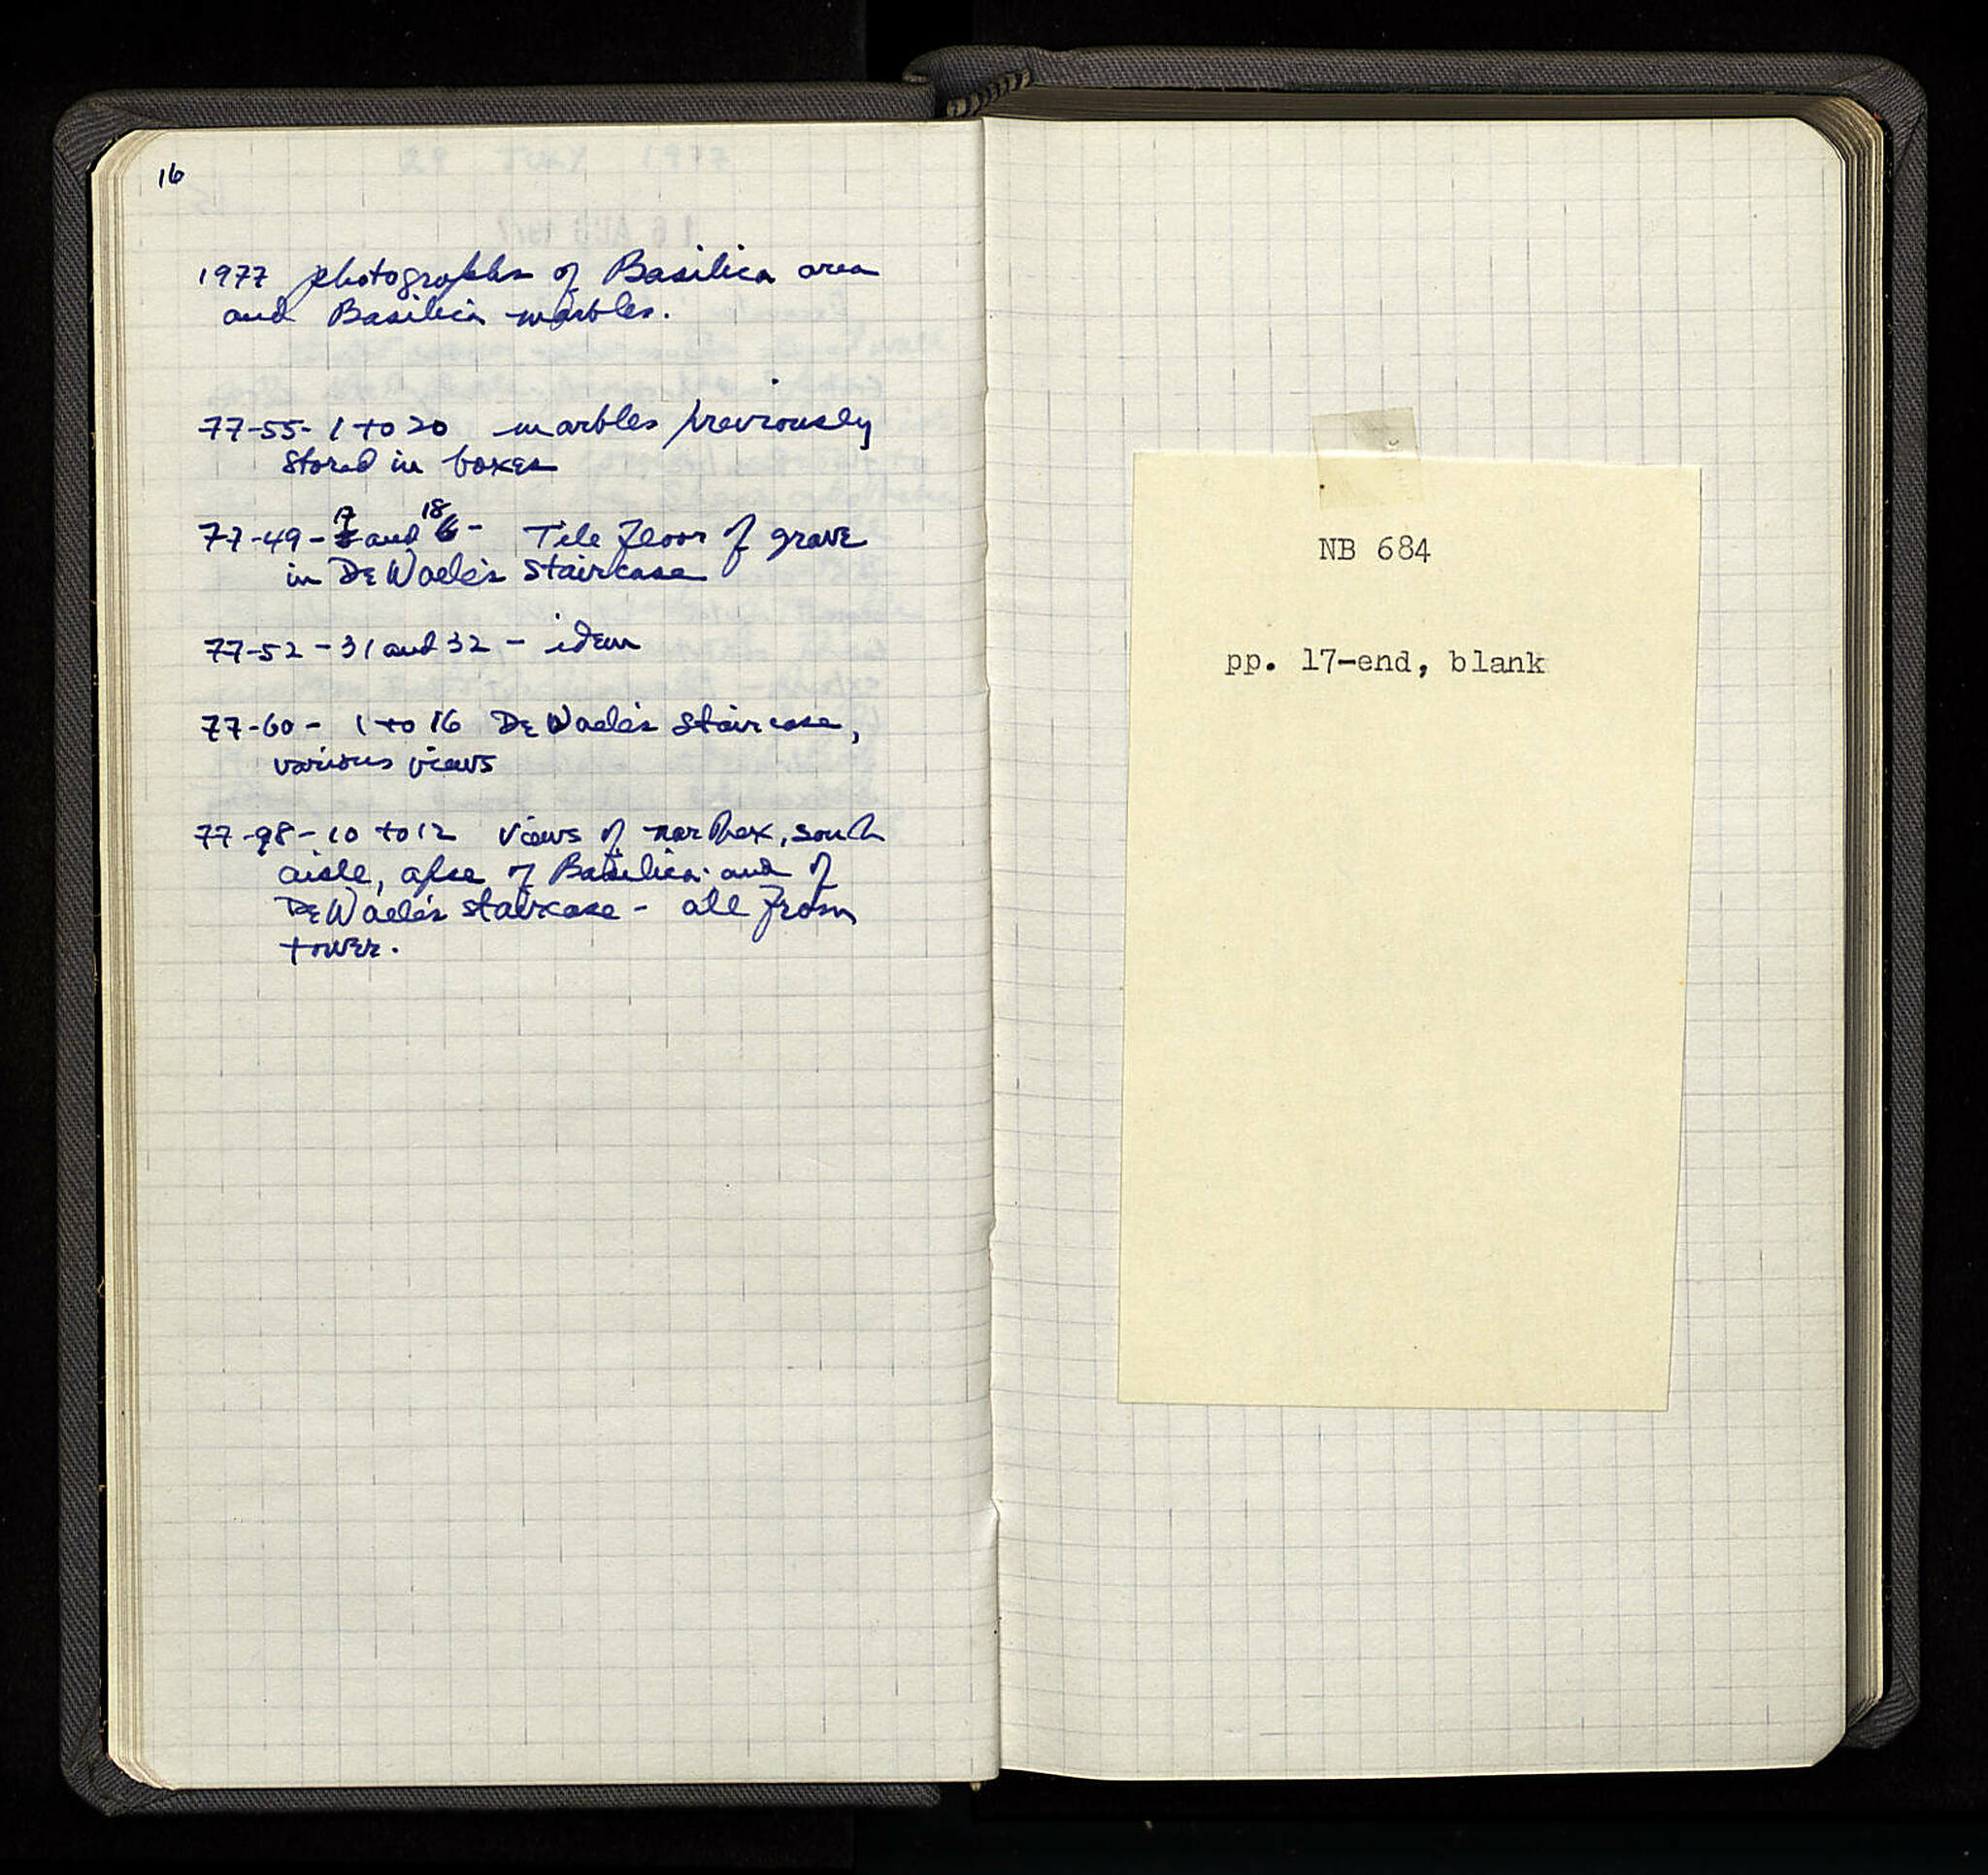 16
1977 photographs of Basilica area
and Basilica marbles.
77-55- 1 to 20 marbles previously
stored in boxes
77-49-17 and 18 - Tile floor of grave
in De Waele's staircase
77-52-31 and 32 - idem
77-60- 1 to 16 De Waele's staircase,
various views
77-98-10 to 12 views of narthex, south
aisle, apse of Basilica and of
De Waele's staircase - all from
tower.
NB 684
pp. 17-end, blank